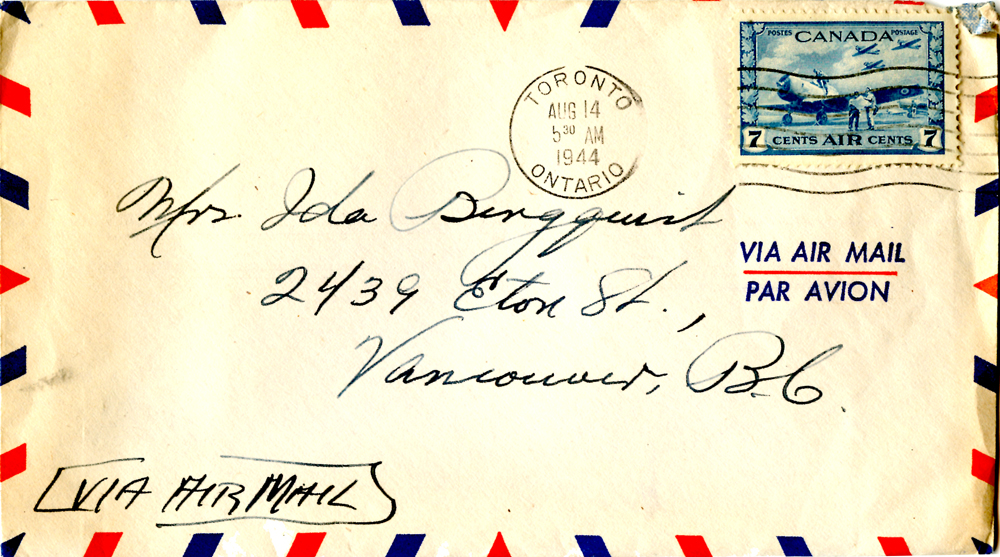 POSTES CANADA POSTAGE
7 CENTS AIR CENTS 7
TORONTO
AUG 14
5³⁰ AM
1944
ONTARIO
Mrs. Ida Bergquist
2439 Eton St.,
Vancouver, B.C.
VIA AIR MAIL
PAR AVION
VIA AIR MAIL